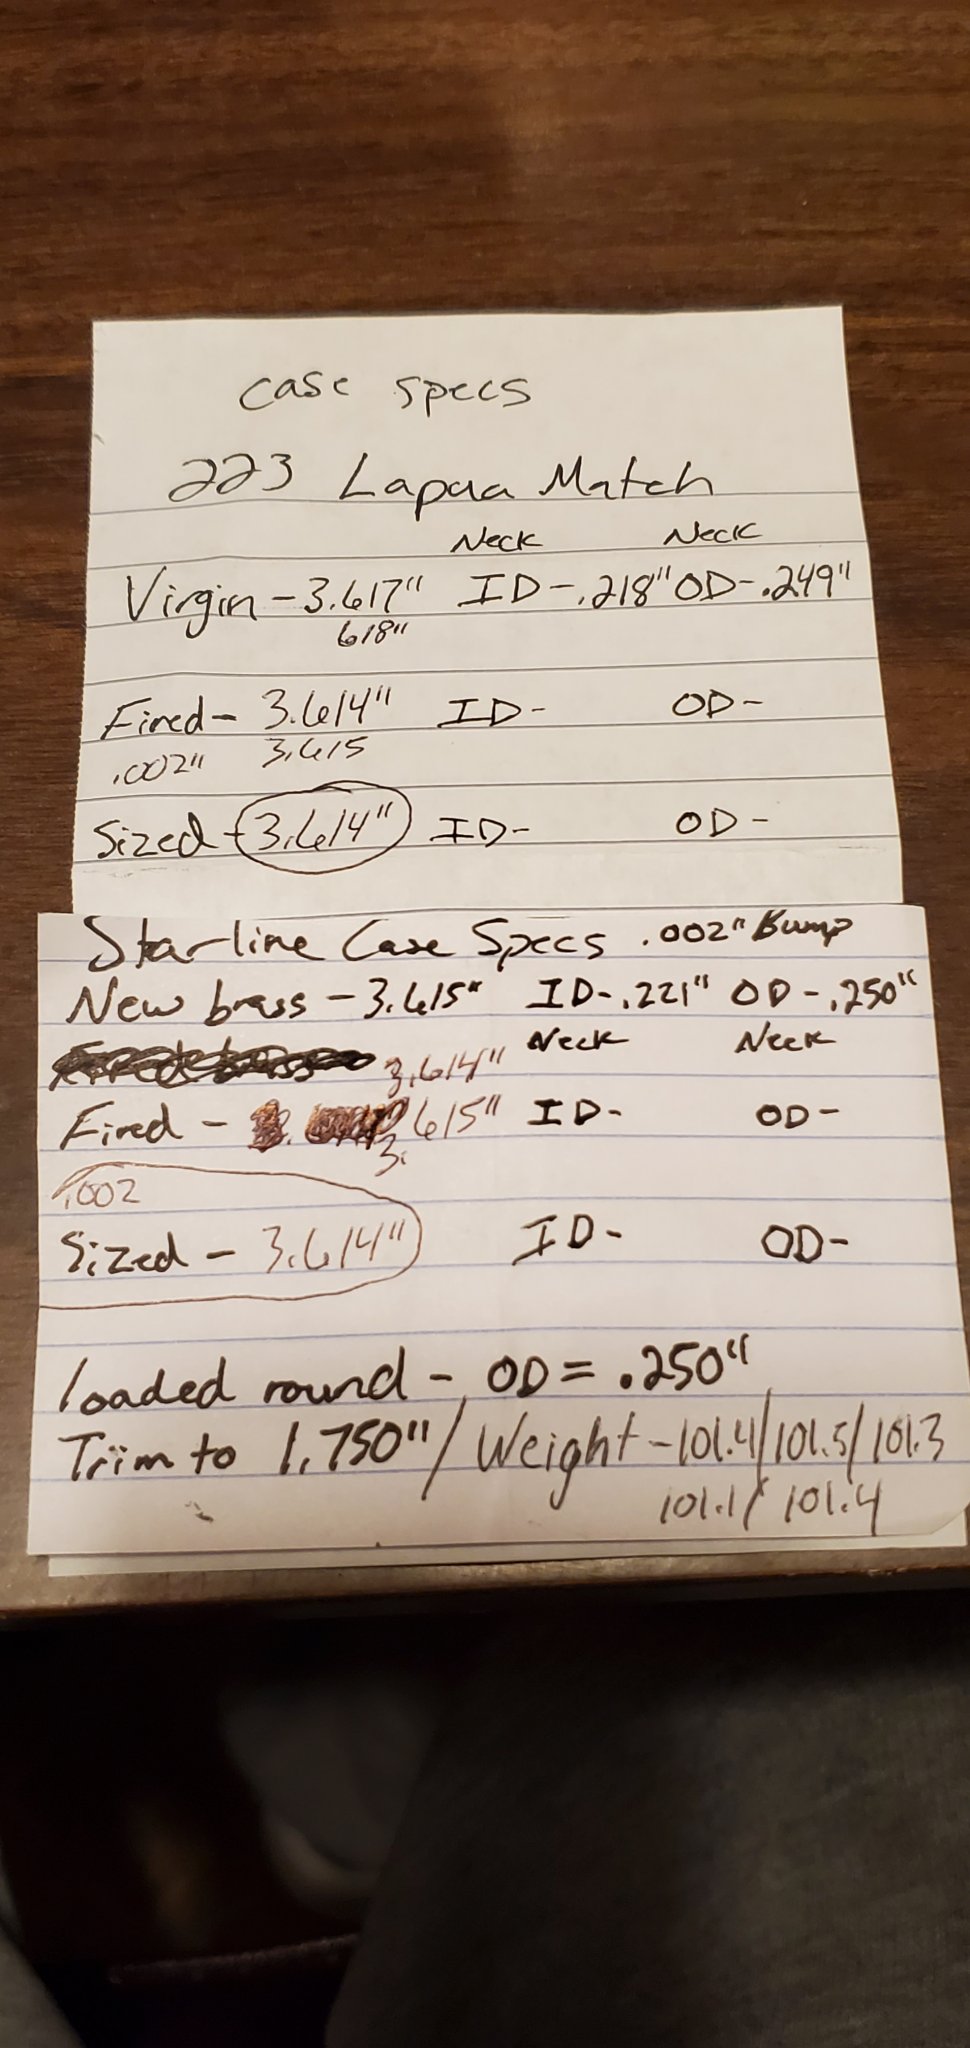 case specs
223 Lapua Match
Neck Neck
Virgin - 3.617" ID - .218" OD - .249"
618"
Fired - 3.614" ID - OD -
.002" 3.615
Sized - 3.614" ID - OD -
Starline Case Specs .002" Bump
New brass - 3.615" ID - .221" OD - .250"
Neck Neck
3.614"
Fired - 3.615" ID - OD -
.002
Sized - 3.614" ID - OD -
loaded round - OD = .250"
Trim to 1.750" / Weight - 101.4/101.5/101.3
101.1/ 101.4